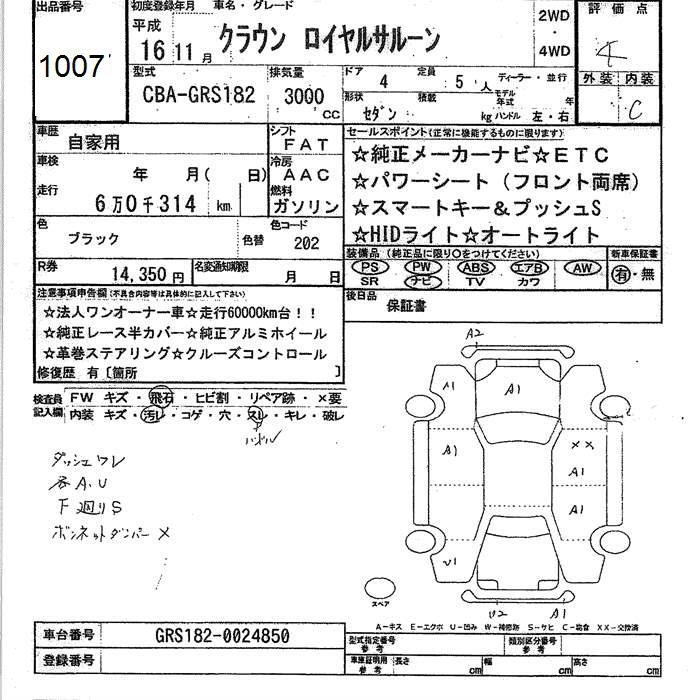 出品番号
1007
初度登録年月 車名・グレード
平成
16 11月 クラウン ロイヤルサルーン
2WD
・
4WD
評価点
4
外装 内装
C
型式
CBA-GRS182
排気量
3000
CC
ドア 4 定員 5人 ディーラー・並行
形状 セダン 積載 kg モデル年式 年
ハンドル 左・右
車歴 自家用
シフト FAT
車検 年 月( 日)
冷房 AAC
走行 6万0千314 km
燃料 ガソリン
色 ブラック 色替
色コード 202
R券 14,350円 名変通知期限 月 日
セールスポイント(正常に機能するものに限ります)
☆純正メーカーナビ☆ETC
☆パワーシート(フロント両席)
☆スマートキー&プッシュS
☆HIDライト☆オートライト
装備品(純正品に限り○をつけてください) 新車保証書
PS PW ABS エアB AW 有・無
SR ナビ TV カワ
後日品 保証書
注意事項申告欄(不具合内容等は具体的に記入して下さい)
☆法人ワンオーナー車☆走行60000km台!!
☆純正レース半カバー☆純正アルミホイール
☆革巻ステアリング☆クルーズコントロール
修復歴 有〔箇所 〕
検査員記入欄
FW キズ・飛石・ヒビ割・リペア跡・×要
内装 キズ・汚レ・コゲ・穴・スレ・キレ・破レ
ハンドル
ダッシュワレ
各A.U
F廻りS
ボンネットダンパー×
A2
A1
A1
A1
××
A1
A1
U1
U2
A1
スペア
A-キズ E-エクボ U-凹み W-補修跡 S-サビ C-腐食 XX-交換済
車台番号 GRS182-0024850
登録番号
型式指定番号 参考
類別区分番号 参考
車庫証明用 参考 長さ cm 幅 cm 高さ cm